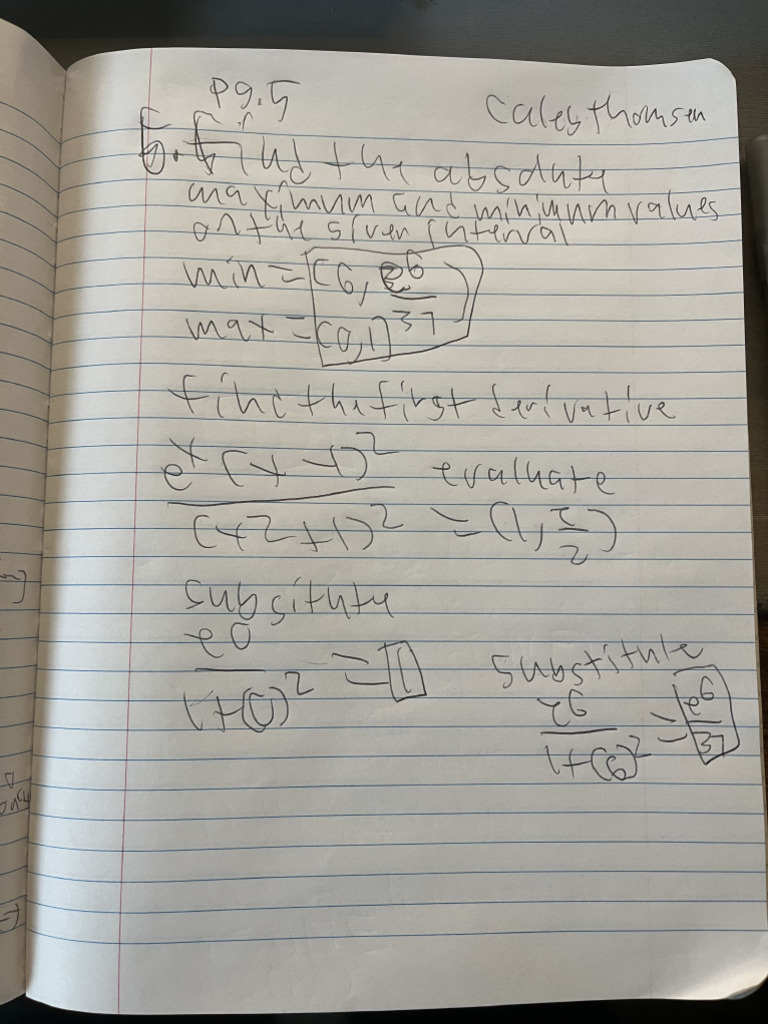 pg.5
Caleb thomsen
6. find the absolute
maximum and minimum values
on the given interval
min = (6, e^6/37)
max = (0,1)
find the first derivative
e^x (x-1)^2 / (x^2+1)^2 evaluate = (1, e/2)
subsitute
e^0 / 1+(0)^2 = 1
substitute
e^6 / 1+(6)^2 = e^6/37